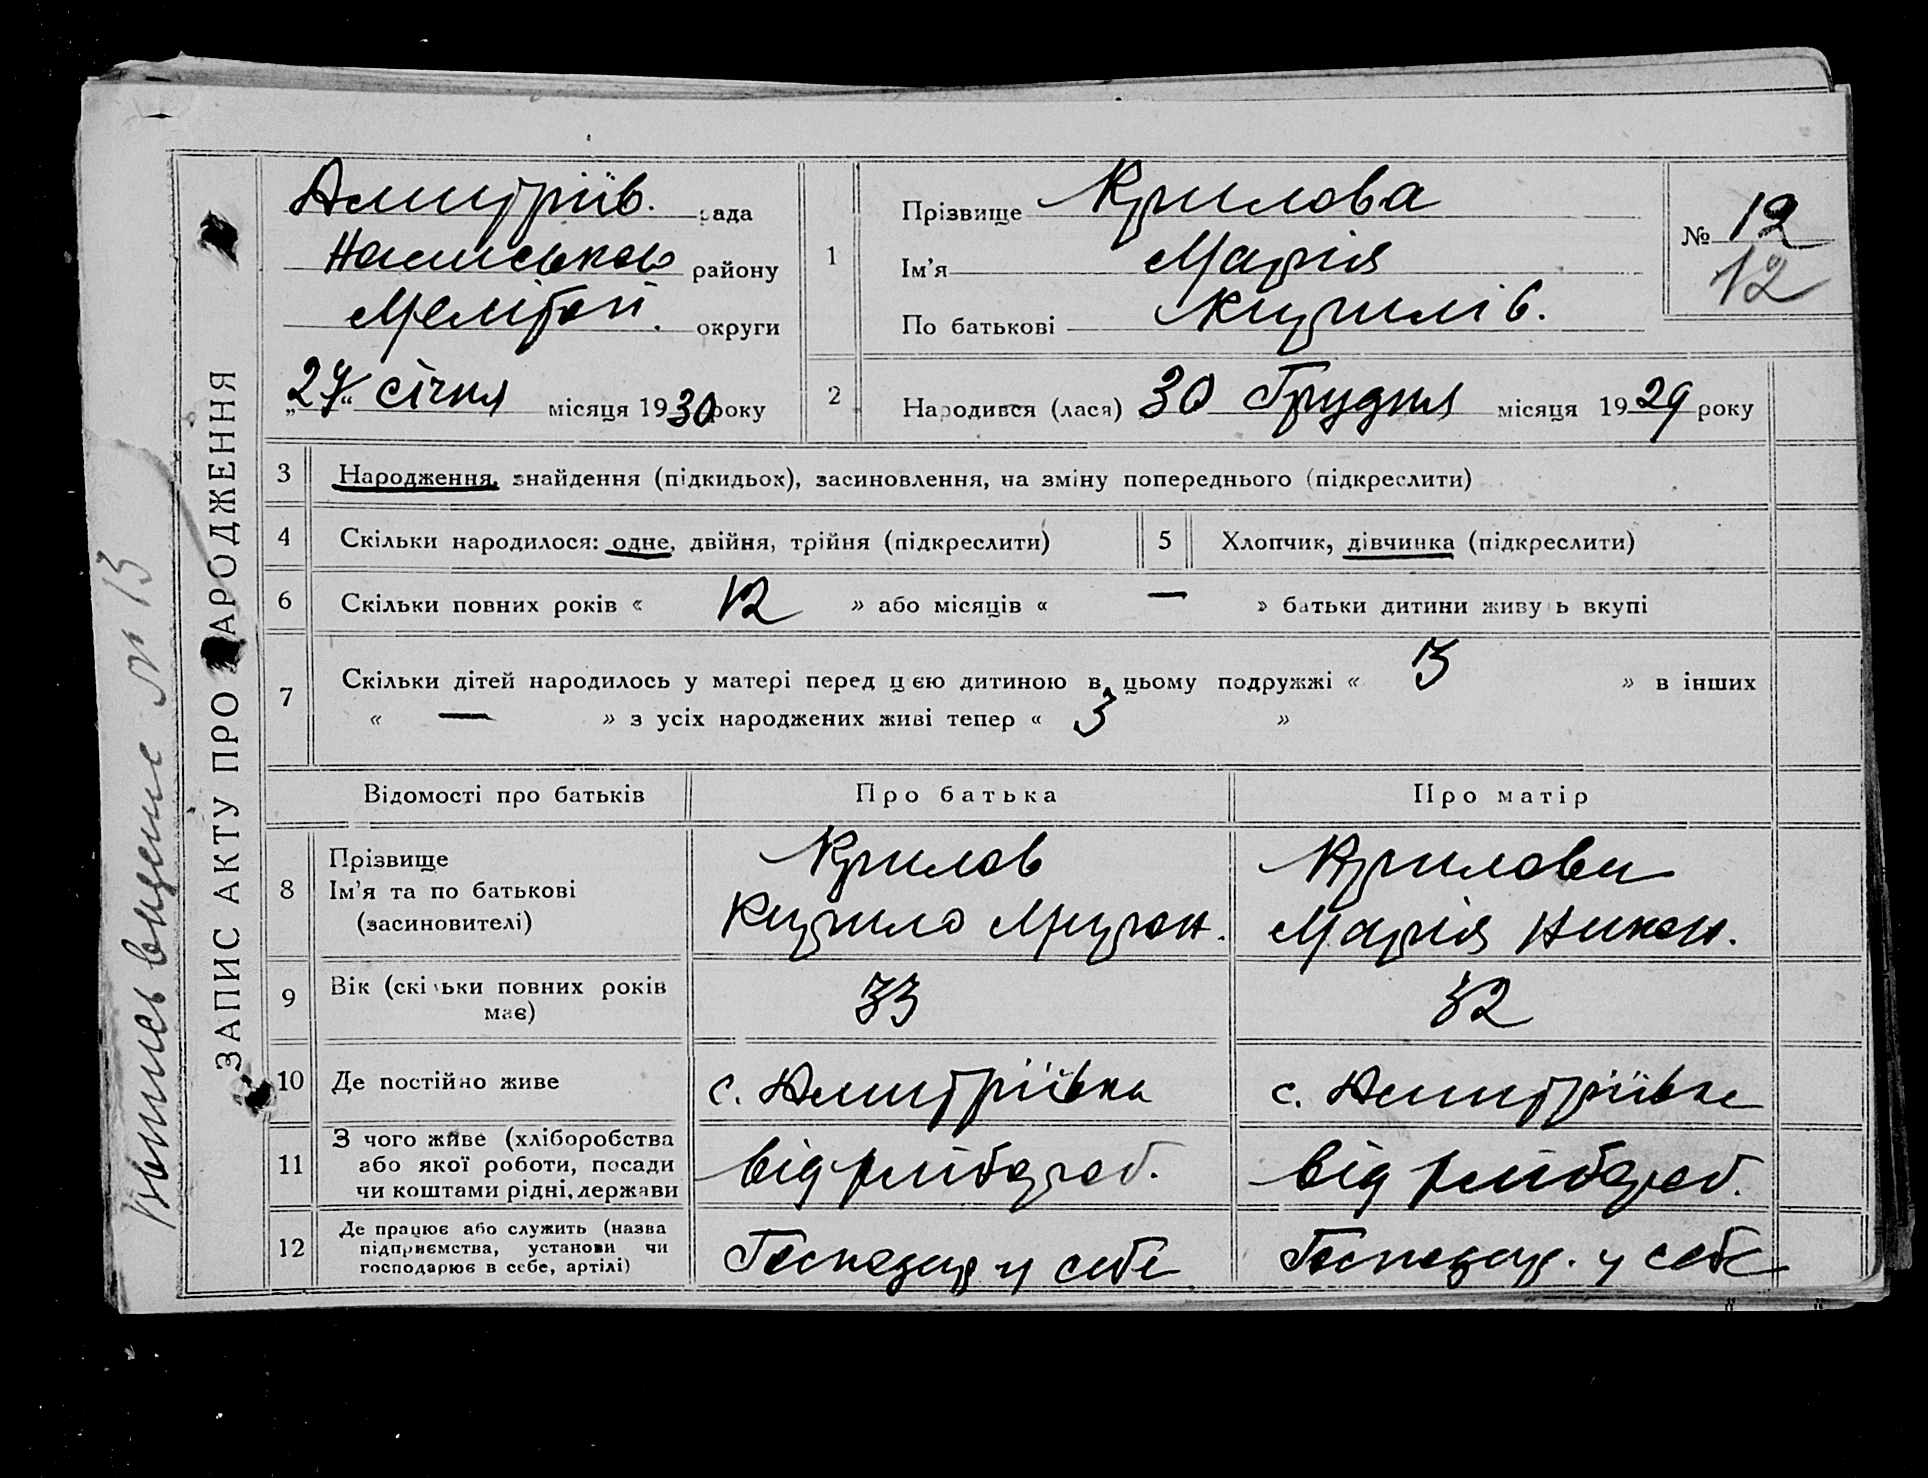 Дмитріїв. рада
району
Меліт округи
„27“ січня місяця 1930 року
1
Прізвище Крилова
Ім’я Марія
По батькові Кирилів.
№ 12
12
2
Народився (лася) 30 Грудня місяця 1929 року
ЗАПИС АКТУ ПРО НАРОДЖЕННЯ
Выпись выдана № 13
3 Народження, знайдення (підкидьок), засиновлення, на зміну попереднього (підкреслити)
4 Скільки народилося: одне, двійня, трійня (підкреслити) 5 Хлопчик, дівчинка (підкреслити)
6 Скільки повних років « 12 » або місяців « — » батьки дитини живуть вкупі
7 Скільки дітей народилось у матері перед цією дитиною в цьому подружжі « 3 » в інших
« — » з усіх народжених живі тепер « 3 »
Відомості про батьків Про батька Про матір
8 Прізвище
Ім’я та по батькові
(засиновителі)
Крилов
Кирило Мирон.
Крилова
Марія Никон.
9 Вік (скільки повних років
має)
33 32
10 Де постійно живе с. Дмитріївка с. Дмитріївка
11 З чого живе (хліборобства
або якої роботи, посади
чи коштами рідні, держави
від хлібороб. від хлібороб.
12 Де працює або служить (назва
підприємства, установи чи
господарює в себе, артілі)
Господар у себе Господар. у себе